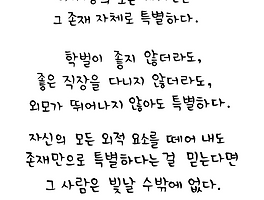 그 존재 자체로 특별하다.
학벌이 좋지 않더라도,
좋은 직장을 다니지 않더라도,
외모가 뛰어나지 않아도 특별하다.
자신의 모든 외적 요소를 떼어 내도
존재만으로 특별하다는 걸 믿는다면
그 사람은 빛날 수밖에 없다.